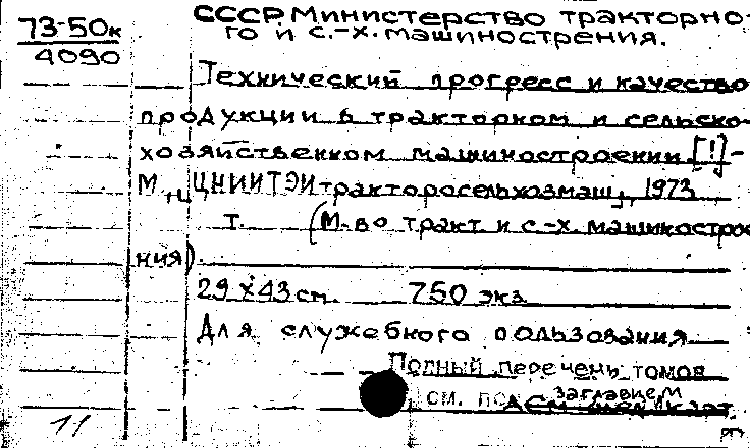 73-50к
4090
СССР. Министерство тракторно-
го и с.-х. машиностроения.
Технический прогресс и качество
продукции в тракторном и сельско-
хозяйственном машиностроении [!] -
М., ЦНИИТЭИтракторосельхозмаш, 1973
т. (М-во тракт. и с.-х. машиностро
ния).
29 х 43 см. 750 экз.
Для служебного пользования
Полный перечень томов
см. под заглавием
11